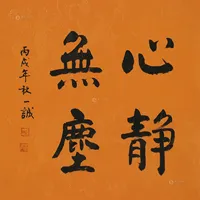 心静
無塵
丙戌年秋一誠